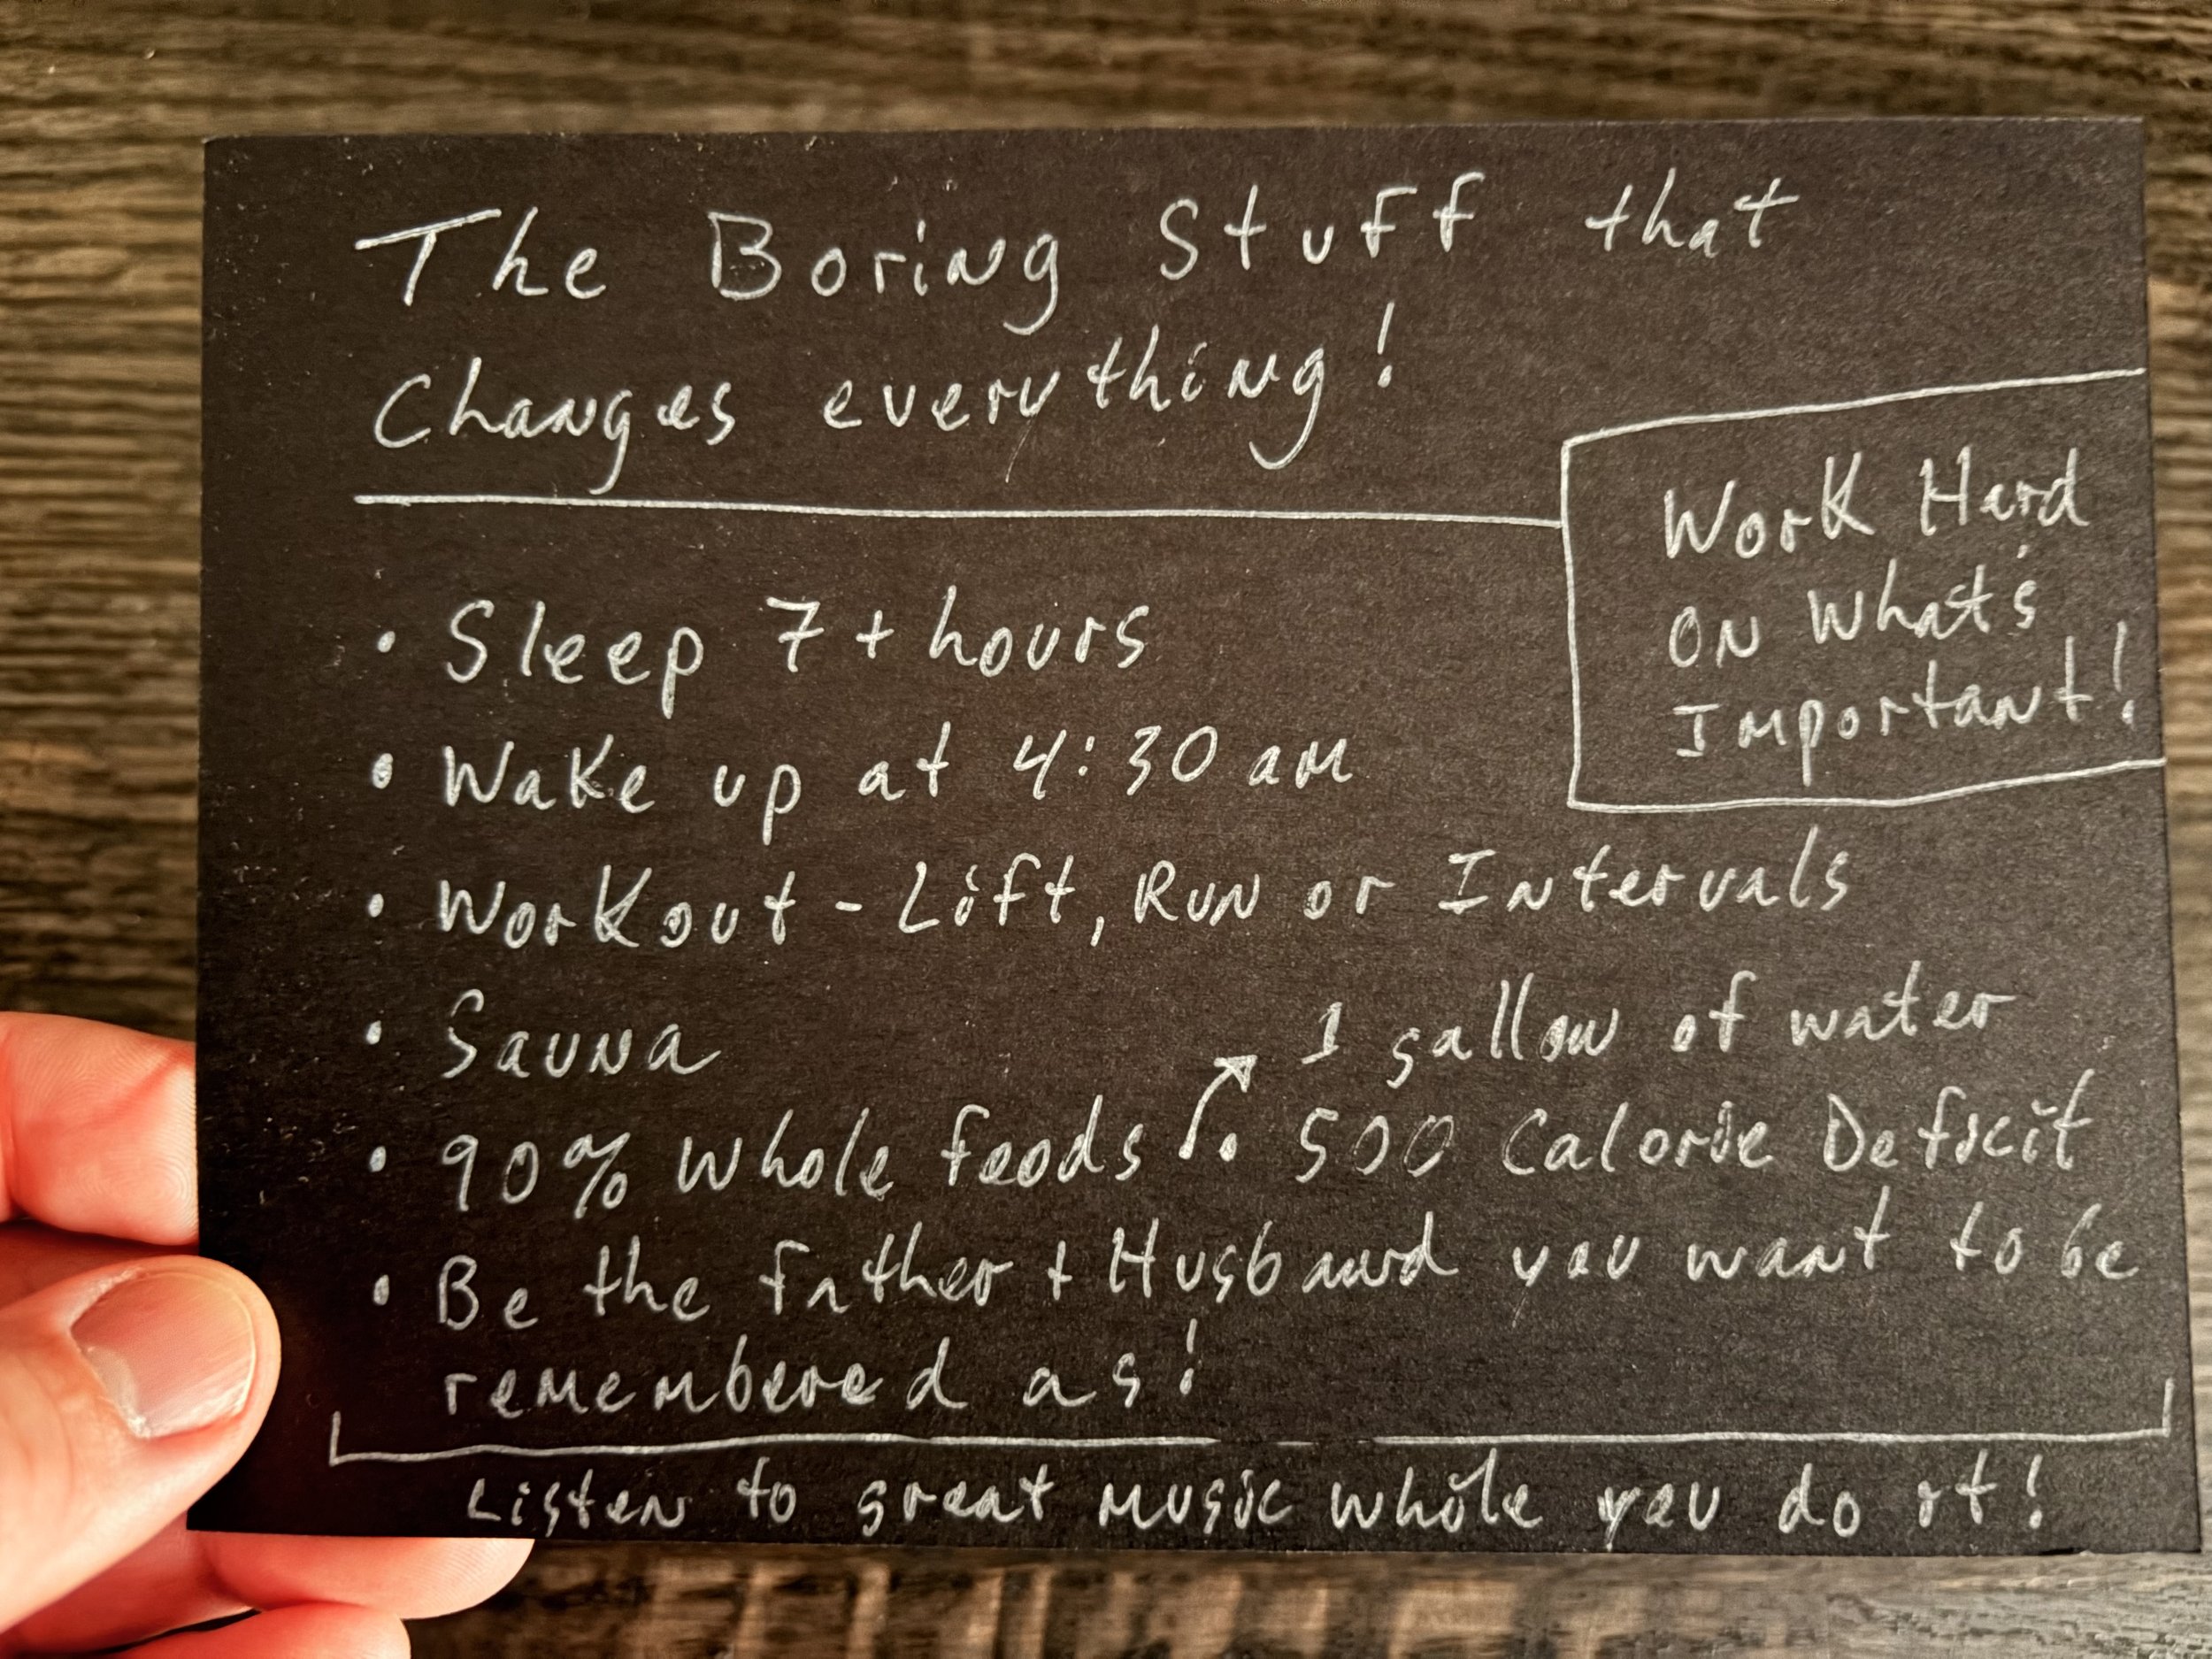 The Boring Stuff that
Changes everything!
Work Hard
ON What's
Important!
• Sleep 7+ hours
• Wake up at 4:30 am
• Workout - Lift, Run or Intervals
• Sauna
1 gallon of water
• 90% Whole foods ↗ • 500 Calorie Deficit
• Be the father + Husband you want to be
remembered as!
Listen to great music while you do it!